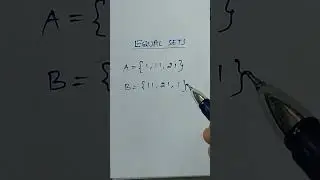 EQUAL SETS
A = {1, 11, 21}
B = {11, 21, 1}